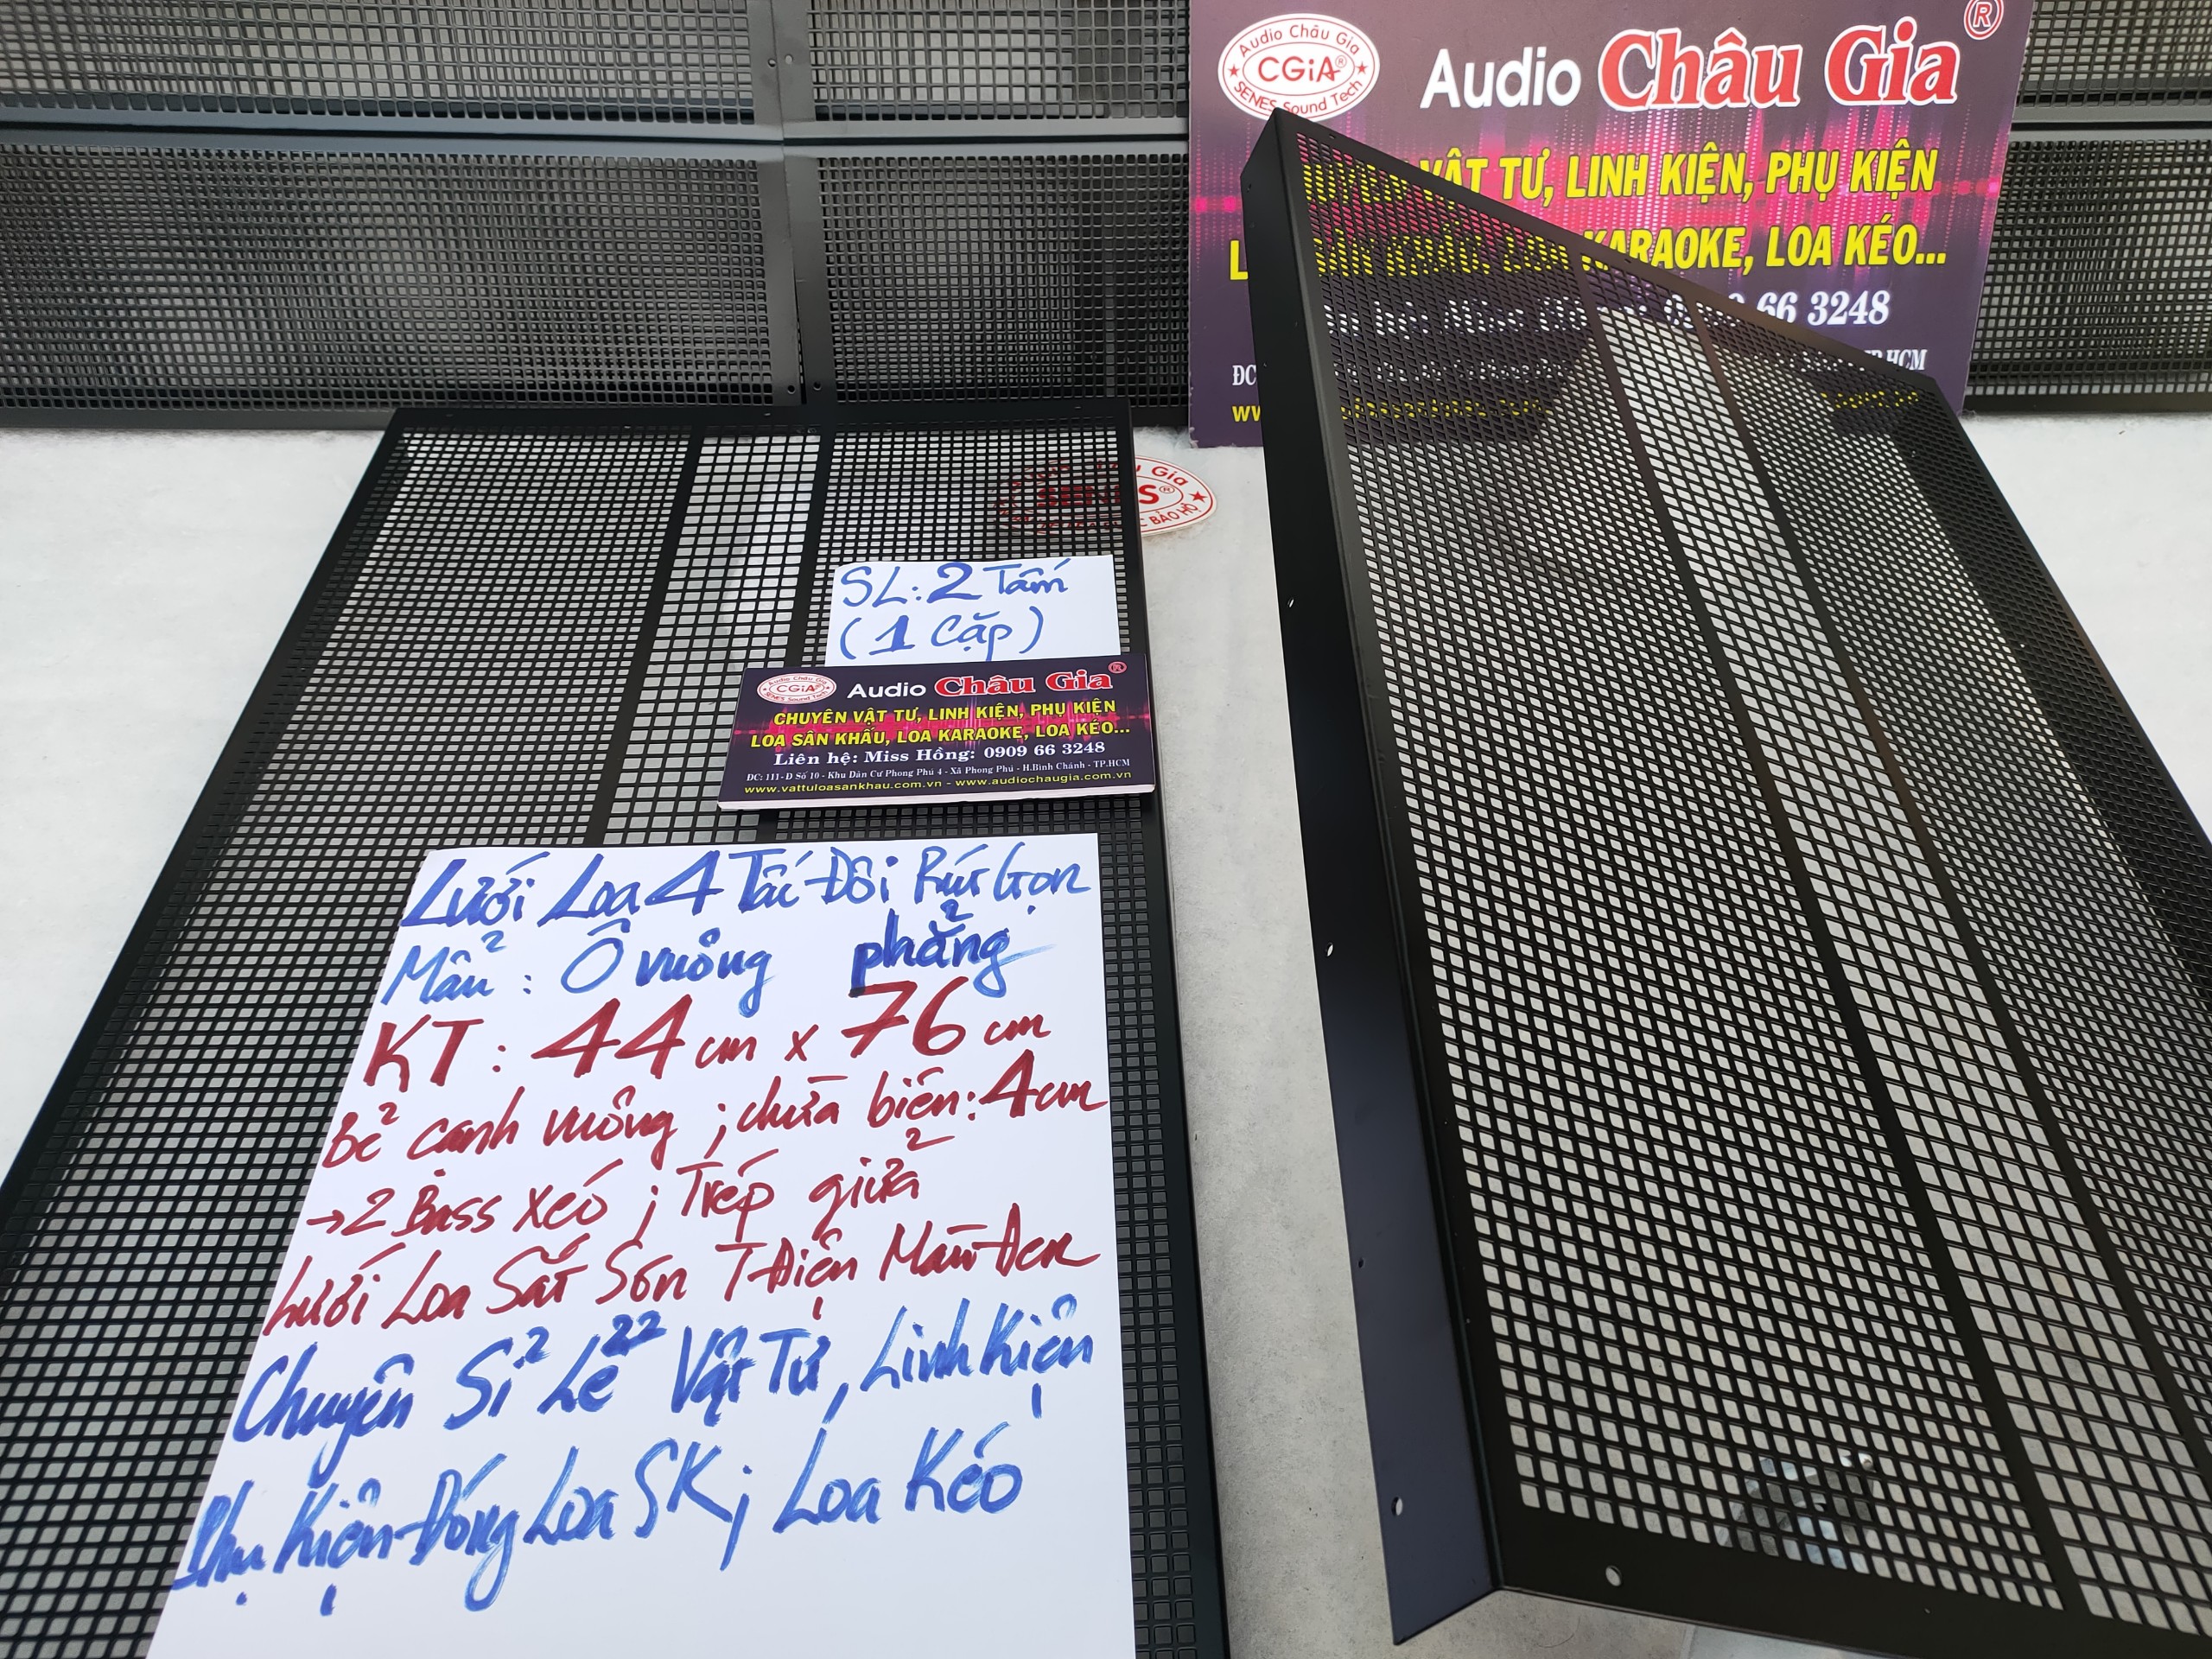 Audio Châu Gia
CGiA®
SENES Sound Tech
Audio Châu Gia®
VẬT TƯ, LINH KIỆN, PHỤ KIỆN
KARAOKE, LOA KÉO...
66 3248
ĐC
TP.HCM
Gia
BẢO HỘ
SL: 2 Tấm
(1 Cặp)
Audio Châu Gia
CGiA®
SENES Sound Tech
Audio Châu Gia®
CHUYÊN VẬT TƯ, LINH KIỆN, PHỤ KIỆN
LOA SÂN KHẤU, LOA KARAOKE, LOA KÉO...
Liên hệ: Miss Hồng: 0909 66 3248
ĐC: 111- Đ Số 10 - Khu Dân Cư Phong Phú 4 - Xã Phong Phú - H.Bình Chánh - TP.HCM
www.vattuloasankhau.com.vn - www.audiochaugia.com.vn
Lưới Loa 4 Tấc Đôi Rút Gọn
Mẫu : Ô vuông phẳng
KT : 44 cm x 76 cm
Bẻ cạnh vuông ; chừa biên: 4cm
→ 2 Bass xéo ; Trép giữa
Lưới Loa Sắt Sơn T Điện Màu Đen
Chuyên Sỉ Lẻ Vật Tư, Linh Kiện
Phụ Kiện Đóng Loa SK; Loa Kéo